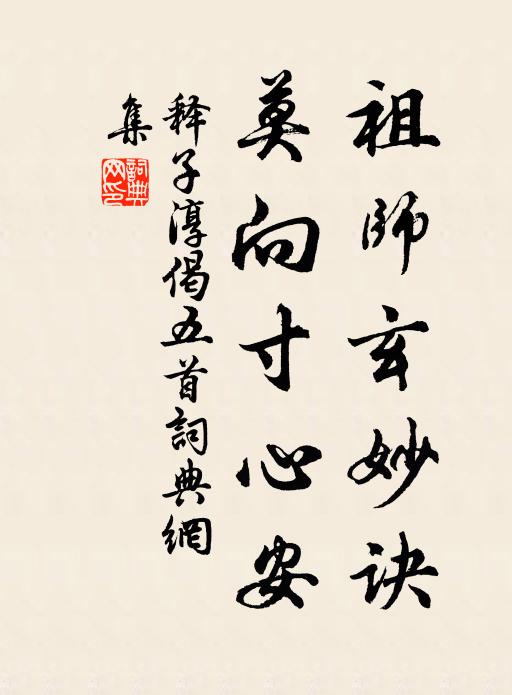 祖師玄妙诀
莫向寸心安
释子淳偈五首詞典網
集
詞典網印